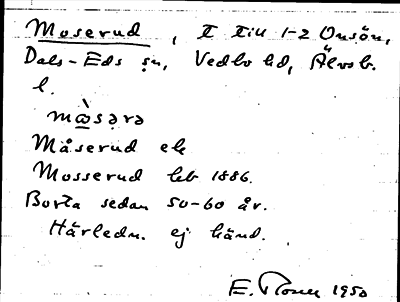 Moserud, T Till 1-2 Onsön,
Dals-Eds sn, Vedbo hd, Älvsb.
l.
mɷ̀sərə
Måserud ek
Mosserud hb 1886.
Borta sedan 50-60 år.
Härledn. ej känd.
E. 1950